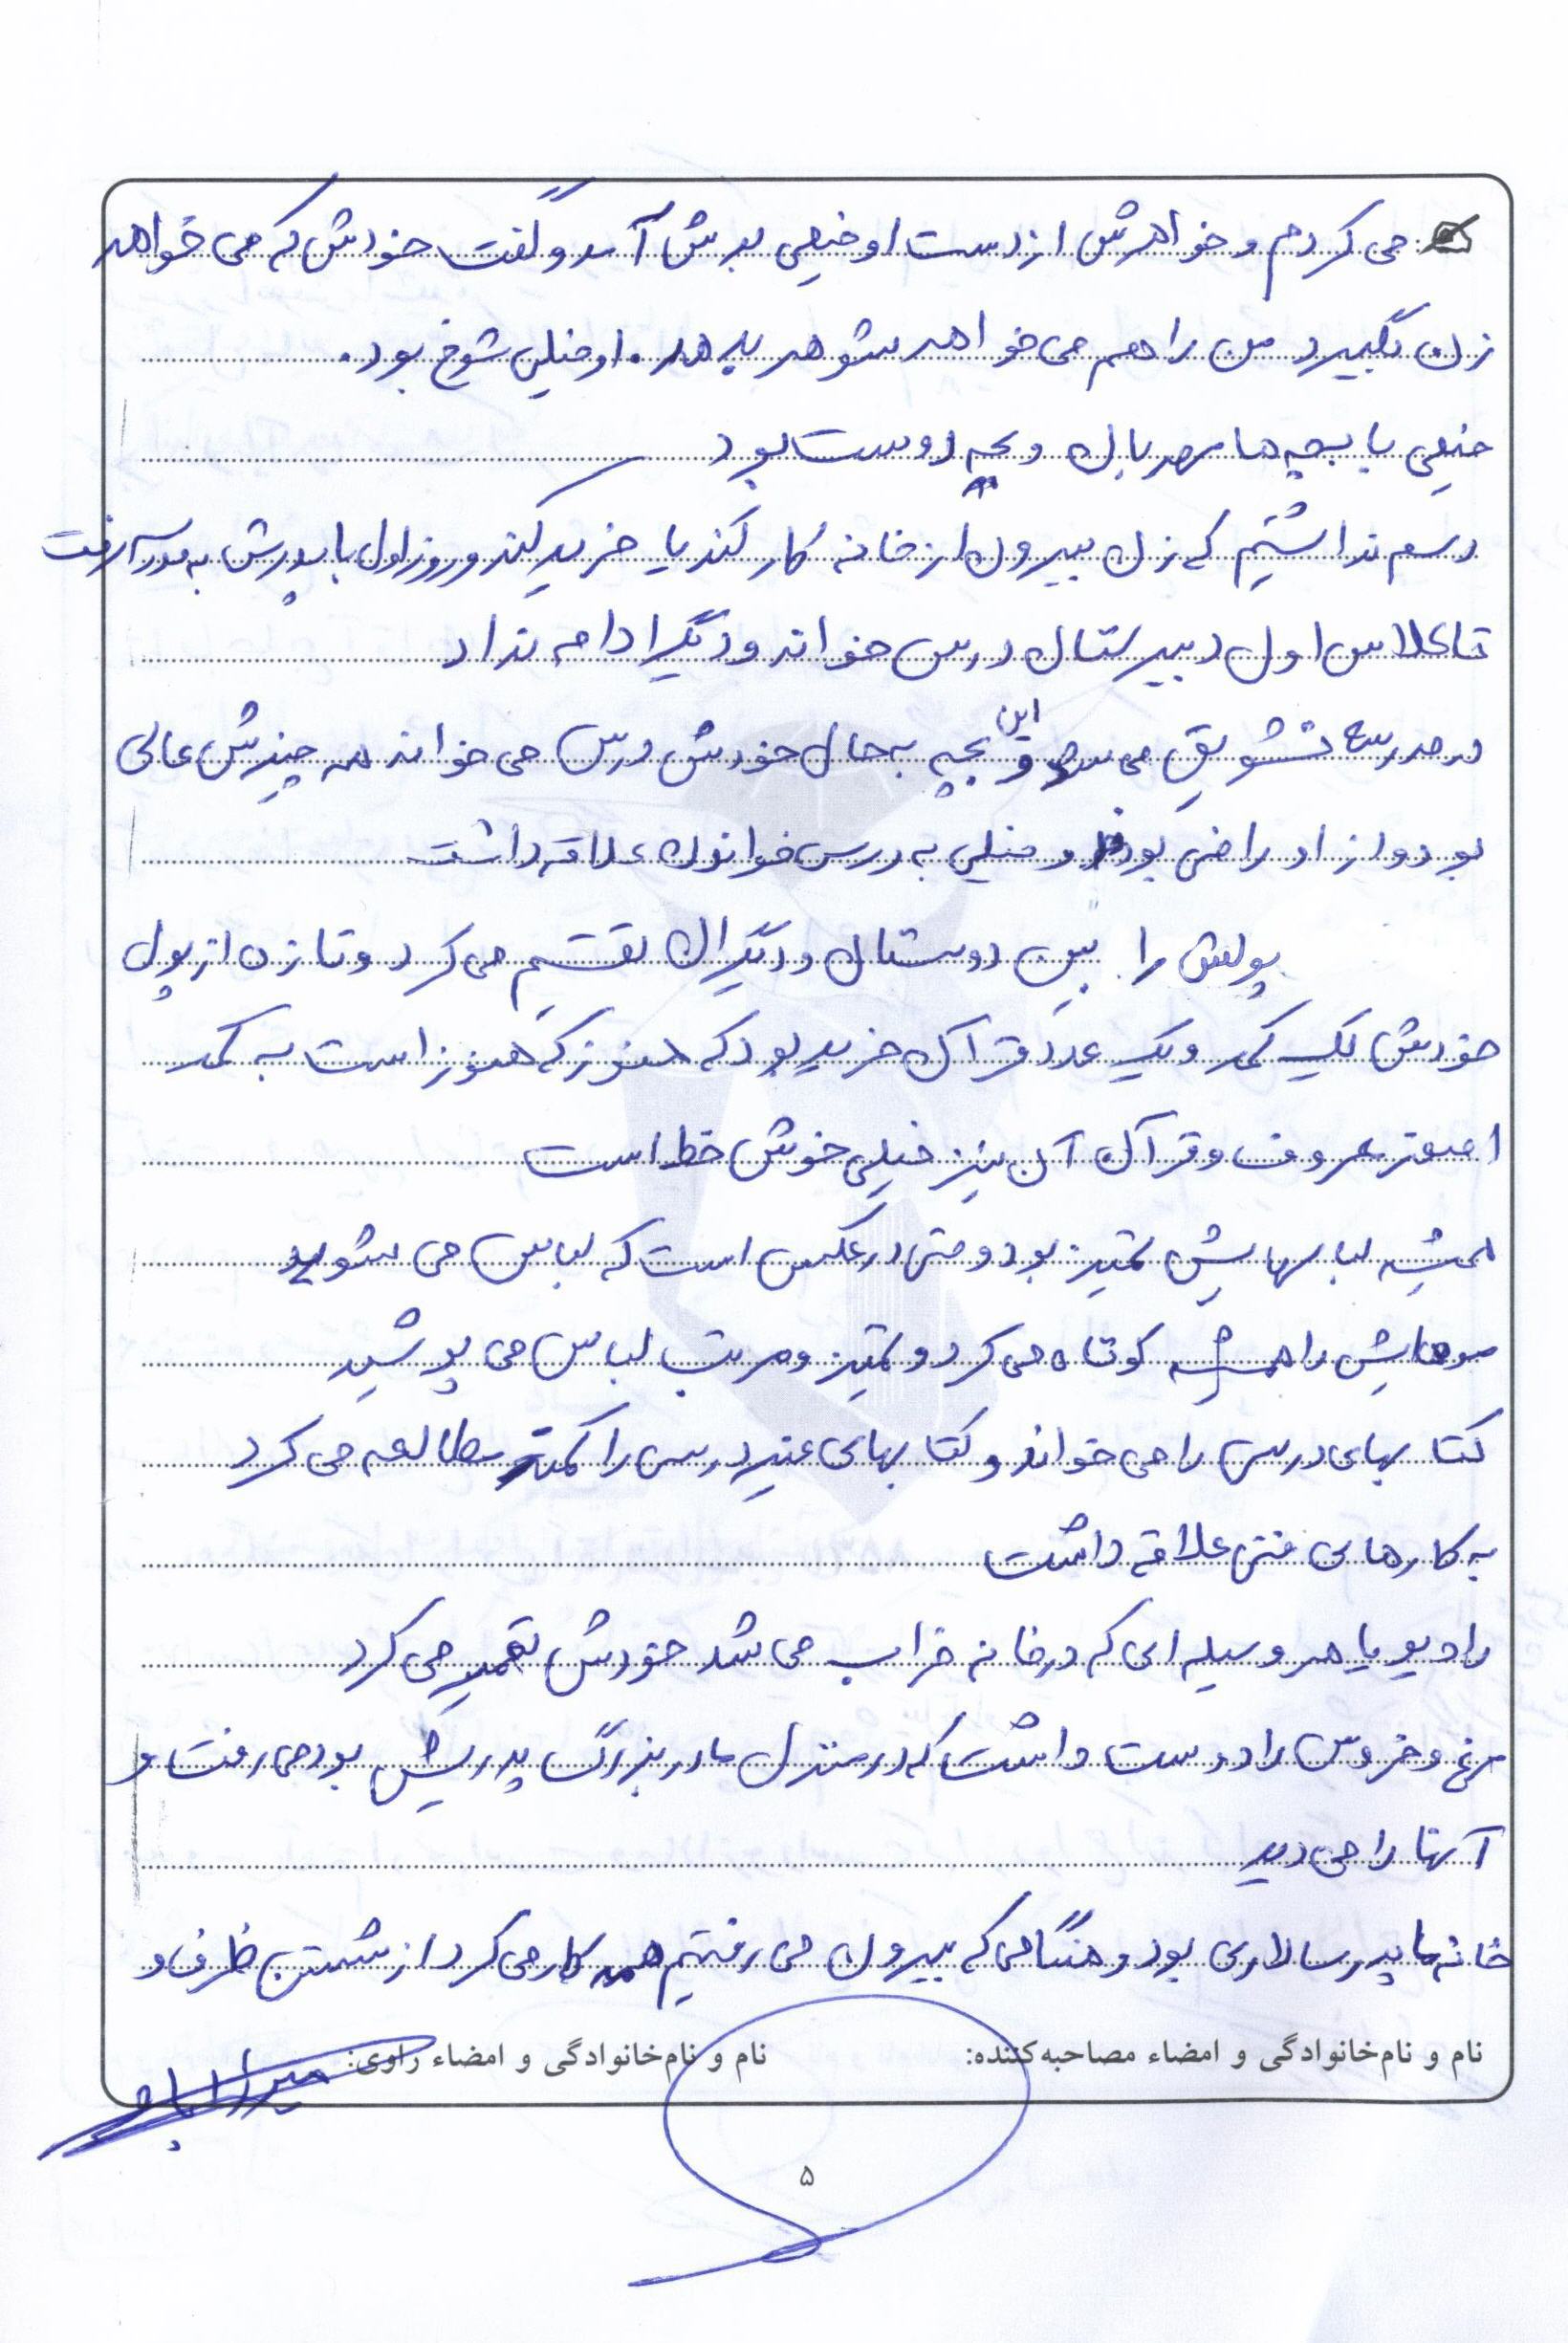 می کردم و خواهرش از دست او خیلی بدش آمد و گفت خودش که می خواهد
زن نگیرد من را هم می خواهد شوهر بدهد. او خیلی شوخ بود.
خیلی با بچه ها مهربان و بچه دوست بود
رسم نداشتیم که زن بیرون از خانه کار کند یا خرید کند و روز اول با پدرش به مدرسه رفت
تا کلاس اول دبیرستان درس خواند و دیگر ادامه نداد
در مدرسه تشویق می شد و این بچه به حال خودش درس می خواند همه چیزش عالی
بود و از او راضی بودند و خیلی به درس خواندن علاقه داشت
پولش را بین دوستان و دیگران تقسیم می کرد و تازه از پول
خودش یک کمد و یک عدد قرآن خرید بود که هنوز که هنوز است به کمد
معروف و قرآن آن نیز خیلی خوش خط است
همیشه لباسهایش تمیز بود و حتی در عکس است که لباس می شوید
موهایش را همیشه کوتاه می کرد و تمیز و مرتب لباس می پوشید
کتابهای درسی را می خواند و کتابهای غیر درسی را کمتر مطالعه می کرد
به کارهای فنی علاقه داشت
رادیو یا هر وسیله ای که در خانه خراب می شد خودش تعمیر می کرد
مرغ و خروس را دوست داشت که در منزل مادر بزرگ پدریش بود می رفت و
آنها را می دید
خانه ما پدر سالاری بود و هنگامی که بیرون می رفتیم همه کار می کرد از شستن ظرف و
نام و نام‌خانوادگی و امضاء مصاحبه‌کننده: نام و نام‌خانوادگی و امضاء راوی:
۵